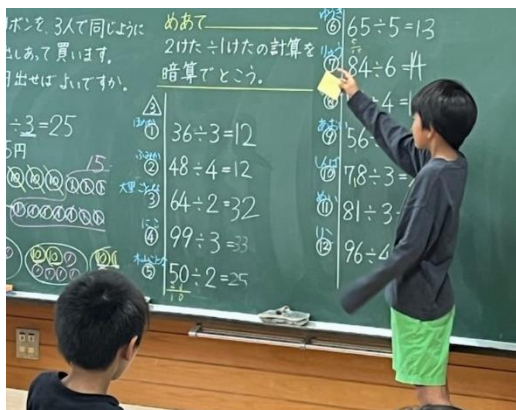 ボンを、3人で同じように
出しあって買います。
円出せばよいですか。
÷3=25
5円
15
めあて
2けた÷1けたの計算を
暗算でとこう。
3
① 36÷3=12
② 48÷4=12
③ 64÷2=32
④ にこ 99÷3=33
⑤ 50÷2=25
⑥ ゆうき 65÷5=13
⑦ りょう 84÷6=14
⑧ ÷4=1
⑨ あおい 56÷
⑩ 78÷3=
⑪ めい 81÷3
⑫ りこ 96÷4